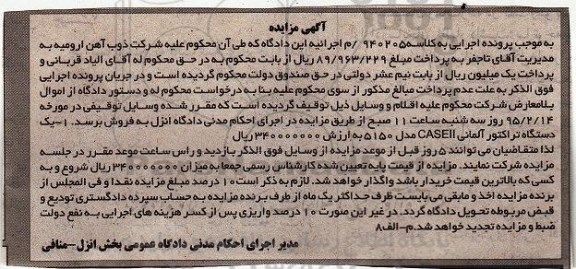 آگهی مزایده
به موجب پرونده اجرایی به کلاسه ۹۴۰۲۰۵/م اجرائیه این دادگاه که طی آن محکوم علیه شرکت ذوب آهن ارومیه به
مدیریت آقای تاجفر به پرداخت مبلغ ۸۹/۹۶۳/۲۲۹ ریال از بابت محکوم به در حق محکوم له آقای الیاد قربانی و
پرداخت یک میلیون ریال از بابت نیم عشر دولتی در حق صندوق دولت محکوم گردیده است و در جریان پرونده اجرایی
فوق الذکر به علت عدم پرداخت مبالغ مذکور از سوی محکوم علیه بنا به درخواست محکوم له و دستور دادگاه از اموال
بلامعارض شرکت محکوم علیه اقلام و وسایل ذیل توقیف گردیده است که مقرر شده وسایل توقیفی در مورخه
۹۵/۲/۱۴ روز سه شنبه ساعت ۱۱ صبح از طریق مزایده در اجرای احکام مدنی دادگاه انزل به فروش برسد. ۱-یک
دستگاه تراکتور آلمانی CASEII مدل ۵۱۵۰ به ارزش ۳۴۰۰۰۰۰۰۰ ریال
لذا متقاضیان می توانند ۵ روز قبل از موعد مزایده از وسایل فوق الذکر بازدید و راس ساعت موعد مقرر در جلسه
مزایده شرکت نمایند. مزایده از قیمت پایه تعیین شده کارشناس رسمی جمعا به میزان ۳۴۰۰۰۰۰۰۰ ریال شروع و به
کسی که بالاترین قیمت خریدار باشد واگذار خواهد شد. لازم به ذکر است ۱۰ درصد مبلغ مزایده نقدا و فی المجلس از
برنده مزایده اخذ و مابقی می بایست ظرف حداکثر یک ماه از طرف برنده مزایده به حساب سپرده دادگستری تودیع و
قبض مربوطه تحویل دادگاه گردد. در غیر این صورت ۱۰ درصد واریزی پس از کسر هزینه های اجرایی به نفع دولت
ضبط و مزایده تجدید خواهد شد.م-الف۸
مدیر اجرای احکام مدنی دادگاه عمومی بخش انزل-منافی